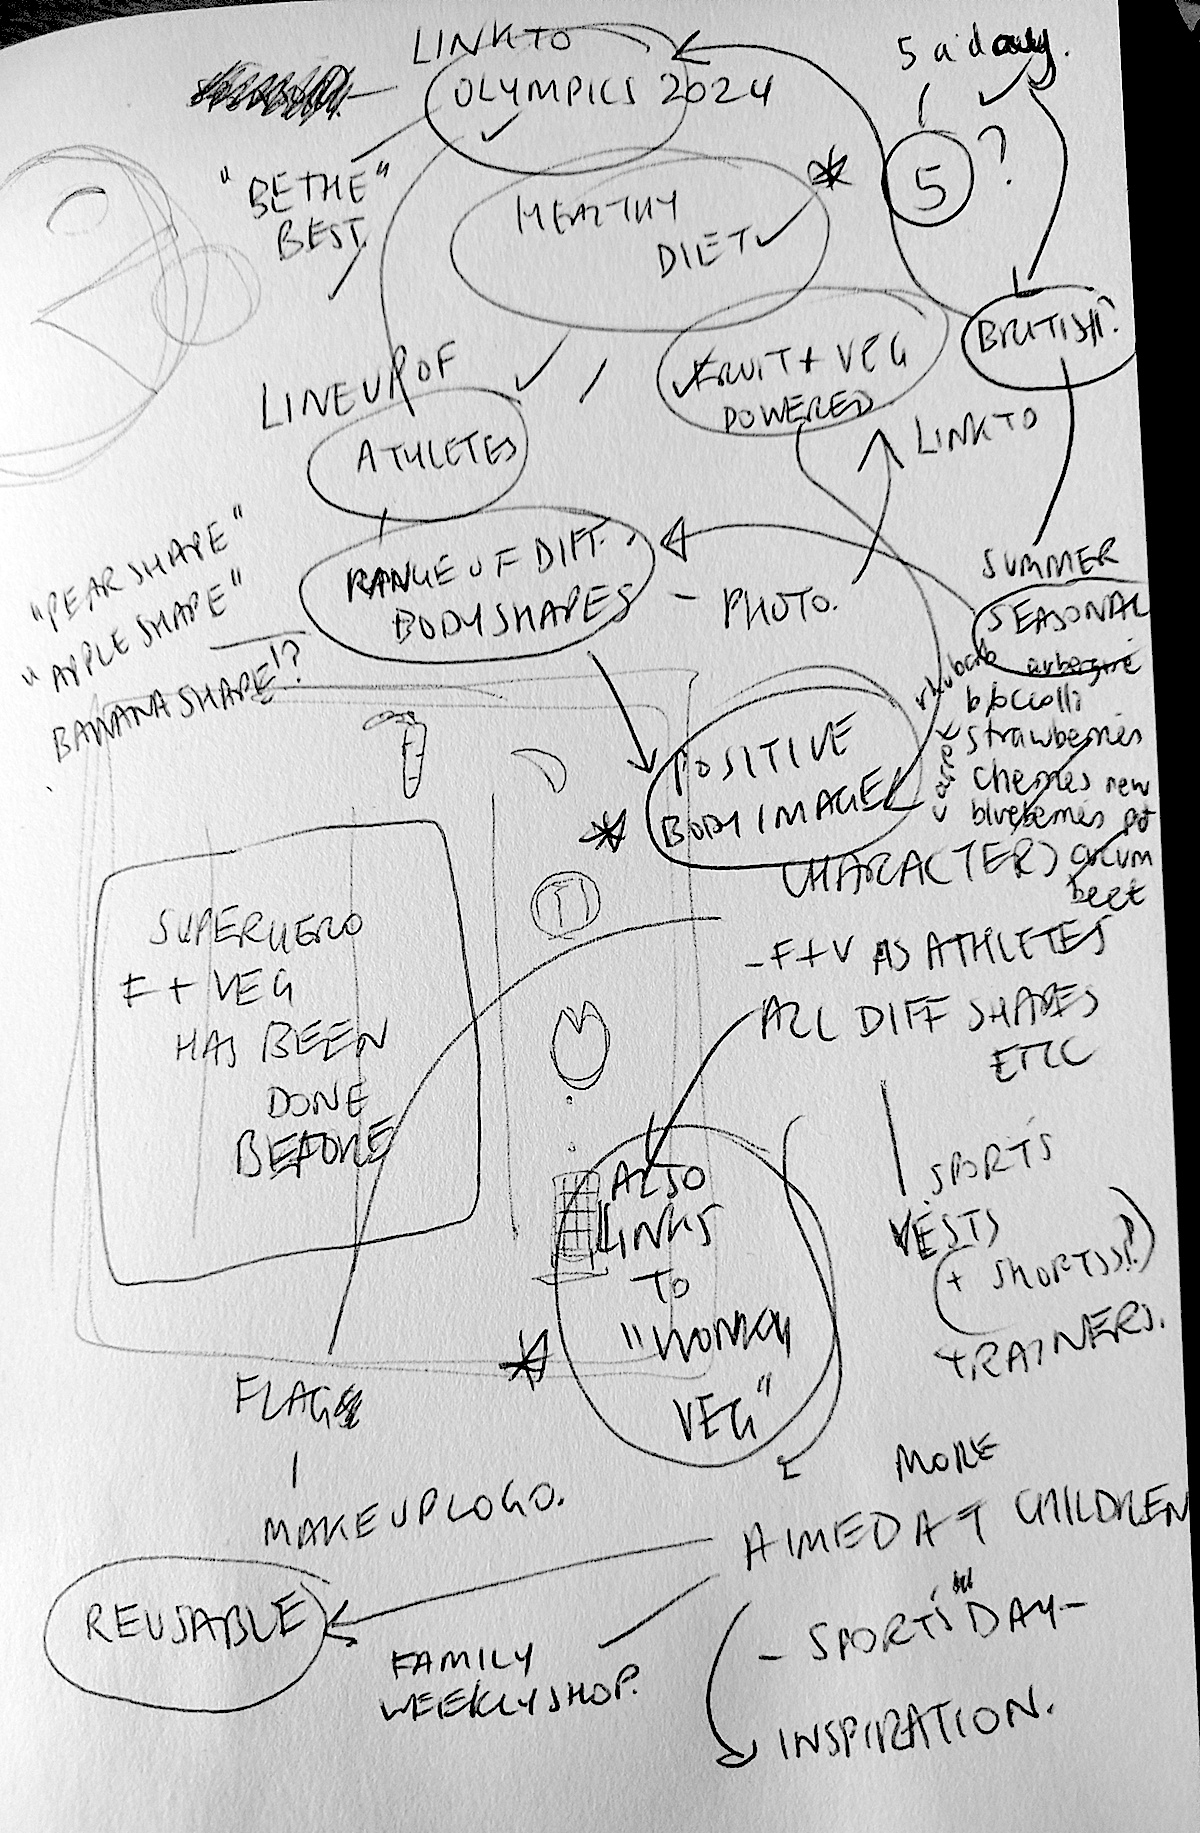 LINK TO
OLYMPICS 2024
5 a day.
5 ?
"BE THE"
BEST.
HEALTHY
DIET
BRITISH?
FRUIT + VEG
POWERED
LINEUP OF
ATHLETES
LINK TO
"PEAR SHAPE"
"APPLE SHAPE"
BANANA SHAPE'?
RANGE OF DIFF.
BODY SHAPES
- PHOTO.
SUMMER
SEASONAL
rhubarb
aubergine
broccolli
carrot
strawberries
cherries new
blueberries pot
cucum
beet
POSITIVE
BODY IMAGE
CHARACTERS
- F+V AS ATHLETES
ALL DIFF SHAPES
ETC
SUPERHERO
F + VEG
HAS BEEN
DONE
BEFORE
1
ALSO
LINKS
TO
"WONKY
VEG"
SPORTS
VESTS
(+ SHORTS?)
TRAINERS.
FLAG
MAKE UP LOGO.
MORE
AIMED AT CHILDREN
REUSABLE
FAMILY
WEEKLY SHOP.
- SPORTS DAY -
INSPIRATION.